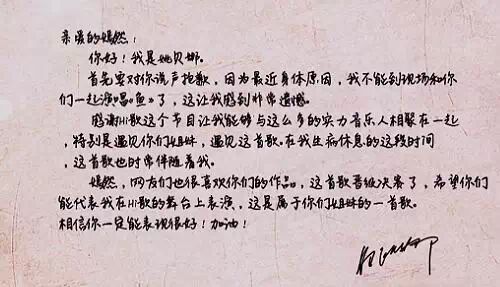 亲爱的嫣然：
你好！我是姚贝娜。
首先要对你说声抱歉，因为最近身体原因，我不能到现场和你
们一起演唱《鱼》了，这让我感到非常遗憾。
感谢Hi歌这个节目让我能够与这么多的实力音乐人相聚在一起
，特别是遇见你们姐妹，遇见这首歌。在我生病休息的这段时间
，这首歌也时常伴随着我。
嫣然，网友们也很喜欢你们的作品，这首歌晋级决赛了，希望你们
能代表我在Hi歌的舞台上表演，这是属于你们姐妹的一首歌。
相信你一定能表现很好！加油！